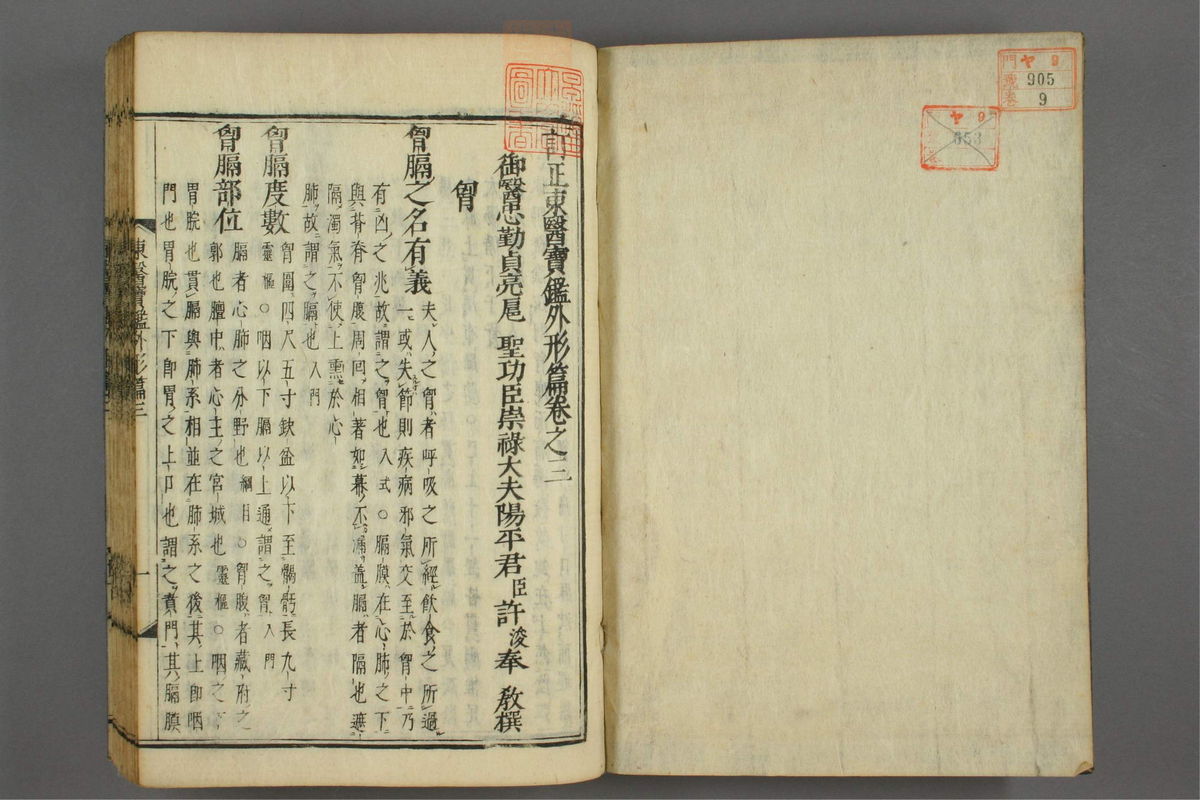 門 ヤ 9
號 905
卷 9
ヤ 9
653
訂正東醫寶鑑外形篇卷之三
御醫忠勤貞亮扈 聖功臣崇祿大夫陽平君臣許浚奉 敎撰
胷
胷膈之名有義 夫人之胷者呼吸之所經飮食之所過
一或失節則疾病邪氣交至於胷中乃
有凶之兆故謂之胷也入式○膈膜在心肺之下
與脊脊胷腹周回相著如幕不漏盖膈者隔也遮
隔濁氣不使上熏於心
肺故謂之膈也入門
胷膈度數 胷圍四尺五寸缺盆以下至𩩲骬長九寸
靈樞○咽以下膈以上通謂之胷入門
胷膈部位 膈者心肺之分野也綱目○胷腹者藏府之
郭也膻中者心主之宮城也靈樞○咽之下
胃脘也貫膈與肺系相並在肺系之後其上卽咽
門也胃脘之下卽胃之上口也謂之賁門其膈膜
東醫寶鑑外形篇三
一